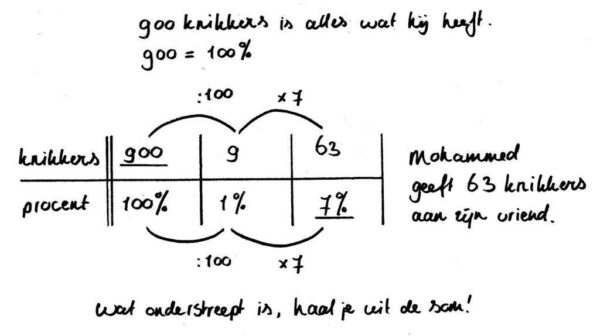 900 knikkers is alles wat hij heeft.
900 = 100%
:100 x7
knikkers 900 9 63
procent 100% 1% 7%
:100 x7
Mohammed
geeft 63 knikkers
aan zijn vriend.
wat onderstreept is, haal je uit de som!